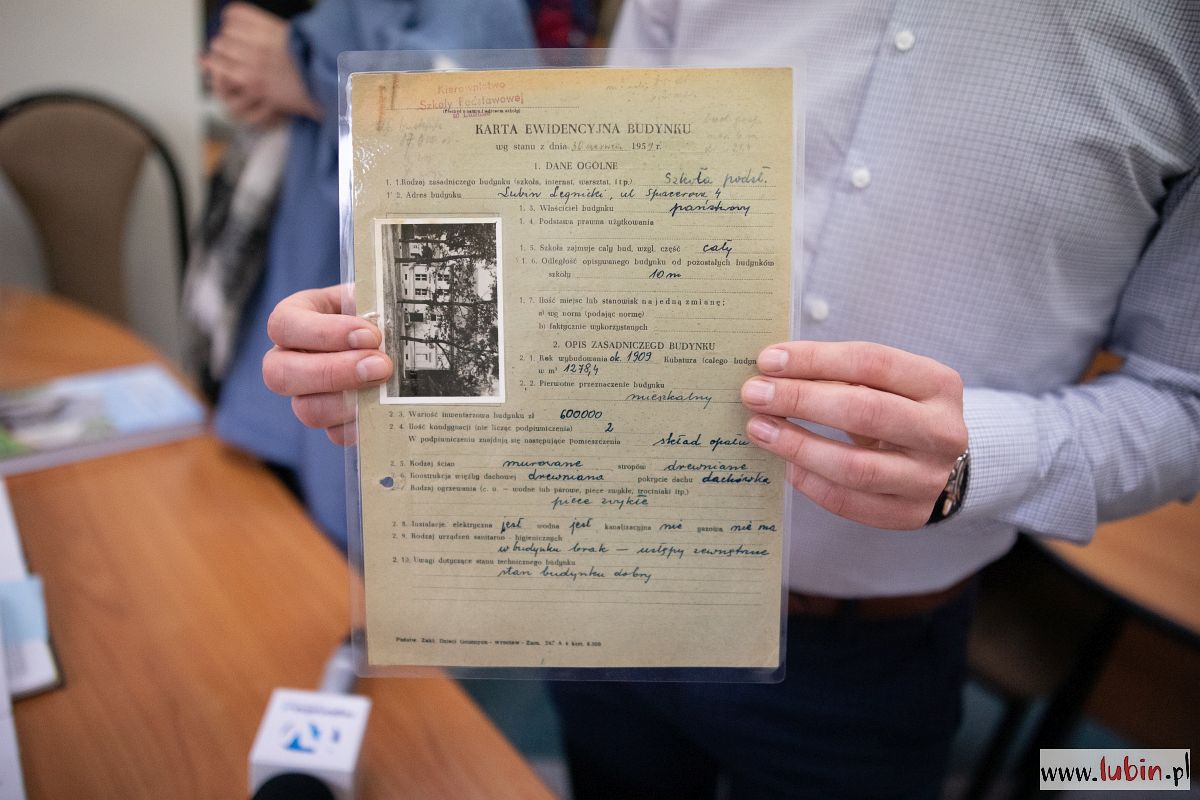 Kierownictwo
Szkoły Podstawowej
w Lubinie
KARTA EWIDENCYJNA BUDYNKU
wg stanu z dnia 30 czerwca 1959 r.
1. DANE OGÓLNE
1. 1. Rodzaj zasadniczego budynku (szkoła, internat, warsztat, itp.) Szkoła podst.
1. 2. Adres budynku Lubin Legnicki, ul Spacerowa 4
1. 3. Właściciel budynku państwowy
1. 4. Podstawa prawna użytkowania
1. 5. Szkoła zajmuje cały bud, wzgl. część cały
1. 6. Odległość opisywanego budynku od pozostałych budynków
szkoły 10 m
1. 7. Ilość miejsc lub stanowisk na jedną zmianę;
a) wg norm (podając normę)
b) faktycznie wykorzystanych
2. OPIS ZASADNICZEGO BUDYNKU
2. 1. Rok wybudowania ok. 1909 Kubatura (całego budyn
w m³ 1278,4
2. 2. Pierwotne przeznaczenie budynku
mieszkalny
2. 3. Wartość inwentarzowa budynku zł 600000
2. 4. Ilość kondygnacji (nie licząc podpiwniczenia) 2
W podpiwniczeniu znajdują się następujące pomieszczenia skład opału
2. 5. Rodzaj ścian murowane stropów drewniane
2. 6. Konstrukcja więźby dachowej drewniana pokrycie dachu dachówka
Rodzaj ogrzewania (c. o. — wodne lub parowe, piece zwykłe, trociniaki itp.)
piece zwykłe
2. 8. Instalacje: elektryczna jest wodna jest kanalizacyjna nie gazowa nie ma
2. 9. Rodzaj urządzeń sanitarno - higienicznych
w budynku brak — ustępy zewnętrzne
2. 10. Uwagi dotyczące stanu technicznego budynku
stan budynku dobry
www.lubin.pl